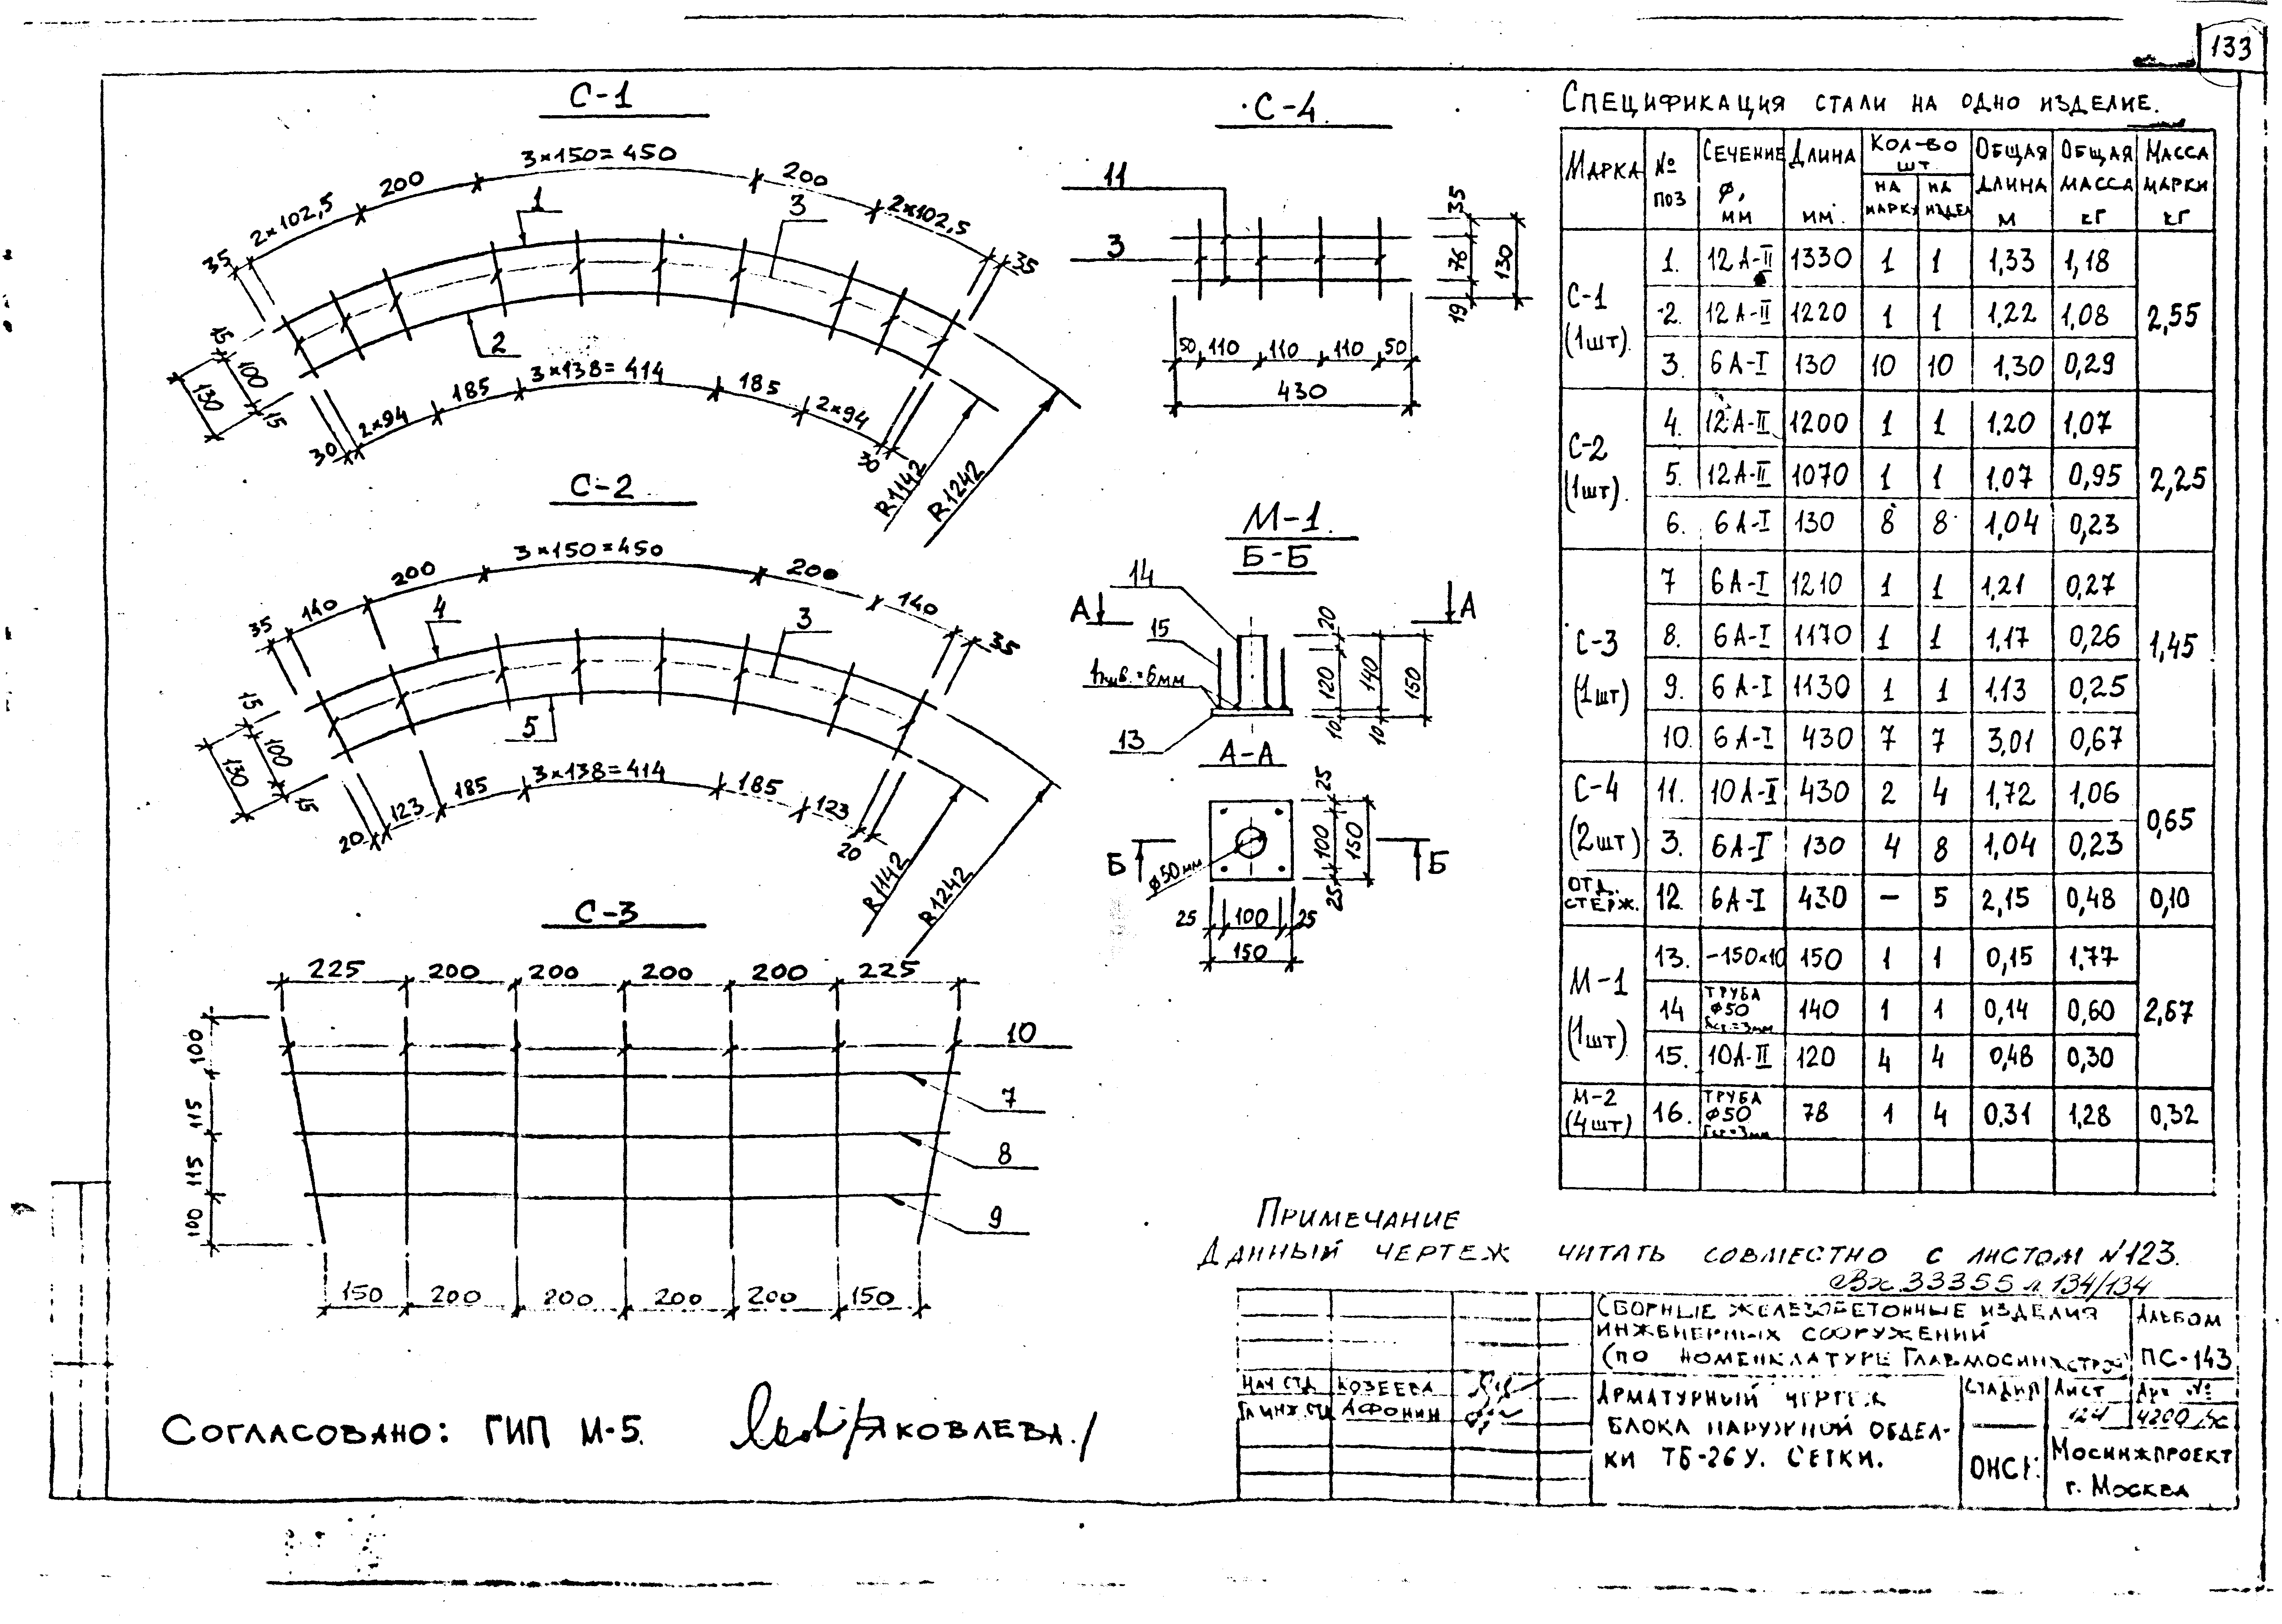 133
С-1
3×150=450
200
200
2×102,5
2×102,5
35
35
1
3
2
15
100
130
15
185
3×138=414
185
2×94
2×94
30
30
R1142
R1242
С-2
3×150=450
200
200
140
140
35
35
4
3
5
15
100
130
15
185
3×138=414
185
123
123
20
20
R1142
R1242
С-3
225 200 200 200 200 225
100
115
115
100
10
7
8
9
150 200 200 200 200 150
С-4
11
3
35
76
19
130
50 110 110 110 50
430
М-1.
Б-Б
14
15
hшв.=6мм
13
А А
20
120
10
140
10
150
А-А
Б Б
ф50мм
25
100
25
150
25 100 25
150
Спецификация стали на одно изделие.
Марка № поз Сечение ф, мм Длина мм. Кол-во шт на марку на издел Общая длина м Общая масса кг Масса марки кг
С-1 (1шт). 2,55
1. 12А-II 1330 1 1 1,33 1,18
2. 12А-II 1220 1 1 1,22 1,08
3. 6А-I 130 10 10 1,30 0,29
С-2 (1шт). 2,25
4. 12А-II 1200 1 1 1.20 1,07
5. 12А-II 1070 1 1 1.07 0,95
6. 6А-I 130 8 8 1,04 0,23
С-3 (1шт) 1,45
7 6А-I 1210 1 1 1,21 0,27
8. 6А-I 1170 1 1 1,17 0,26
9. 6А-I 1130 1 1 1,13 0,25
10. 6А-I 430 7 7 3,01 0,67
С-4 (2шт) 0,65
11. 10А-II 430 2 4 1,72 1,06
3. 6А-I 130 4 8 1,04 0,23
отд. стерж. 12. 6А-I 430 — 5 2,15 0,48 0,10
М-1 (1шт) 2,67
13. -150×10 150 1 1 0,15 1.77
14 труба ф50 =3мм 140 1 1 0,14 0,60
15. 10А-II 120 4 4 0,48 0,30
М-2 (4шт) 16. труба ф50 =3мм 78 1 4 0,31 1,28 0,32
Примечание
Данный чертеж читать совместно с листом №123.
Вх. 33355 л 134/134
Сборные железобетонные изделия
инженерных сооружений
(по номенклатуре Главмосинжстроя)
Альбом
ПС-143
Нач отд Козеева
Гл инж отд Афонин
Арматурный чертеж
блока наружной обдел-
ки ТБ-26У. Сетки.
Стадия Лист Арх №
124 4200
ОНСК
Мосинжпроект
г. Москва
Согласовано: ГИП М-5. /Яковлева./